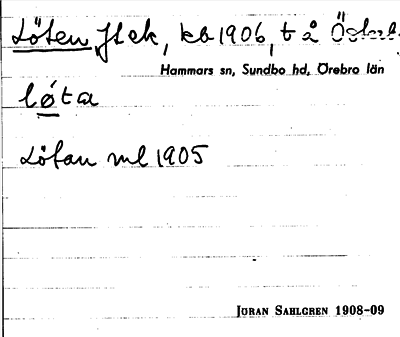 Löten, Jlek, kb 1906, t å Österb.
Hammars sn, Sundbo hd, Örebro län
lǿta
Löfan ml 1905
JÖRAN SAHLGREN 1908-09